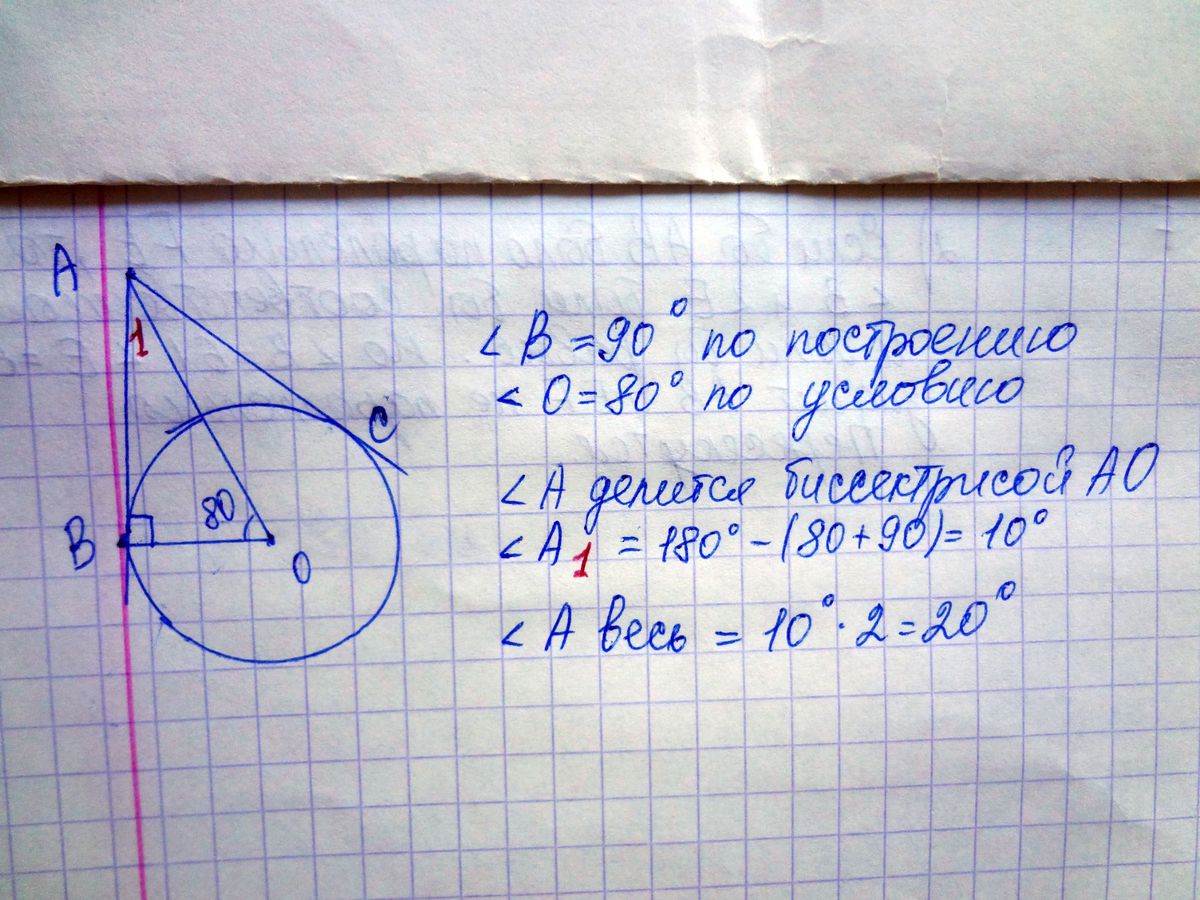 A
1
C
80
B
O
< B = 90° по построению
< O = 80° по условию
< A делится биссектрисой AO
< A1 = 180° - (80 + 90) = 10°
< A весь = 10° · 2 = 20°